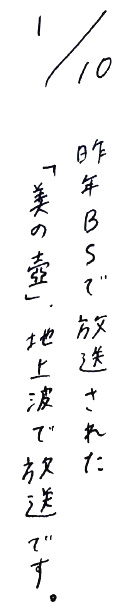 1/10
昨年BSで放送された
「美の壺」、地上波で放送です。